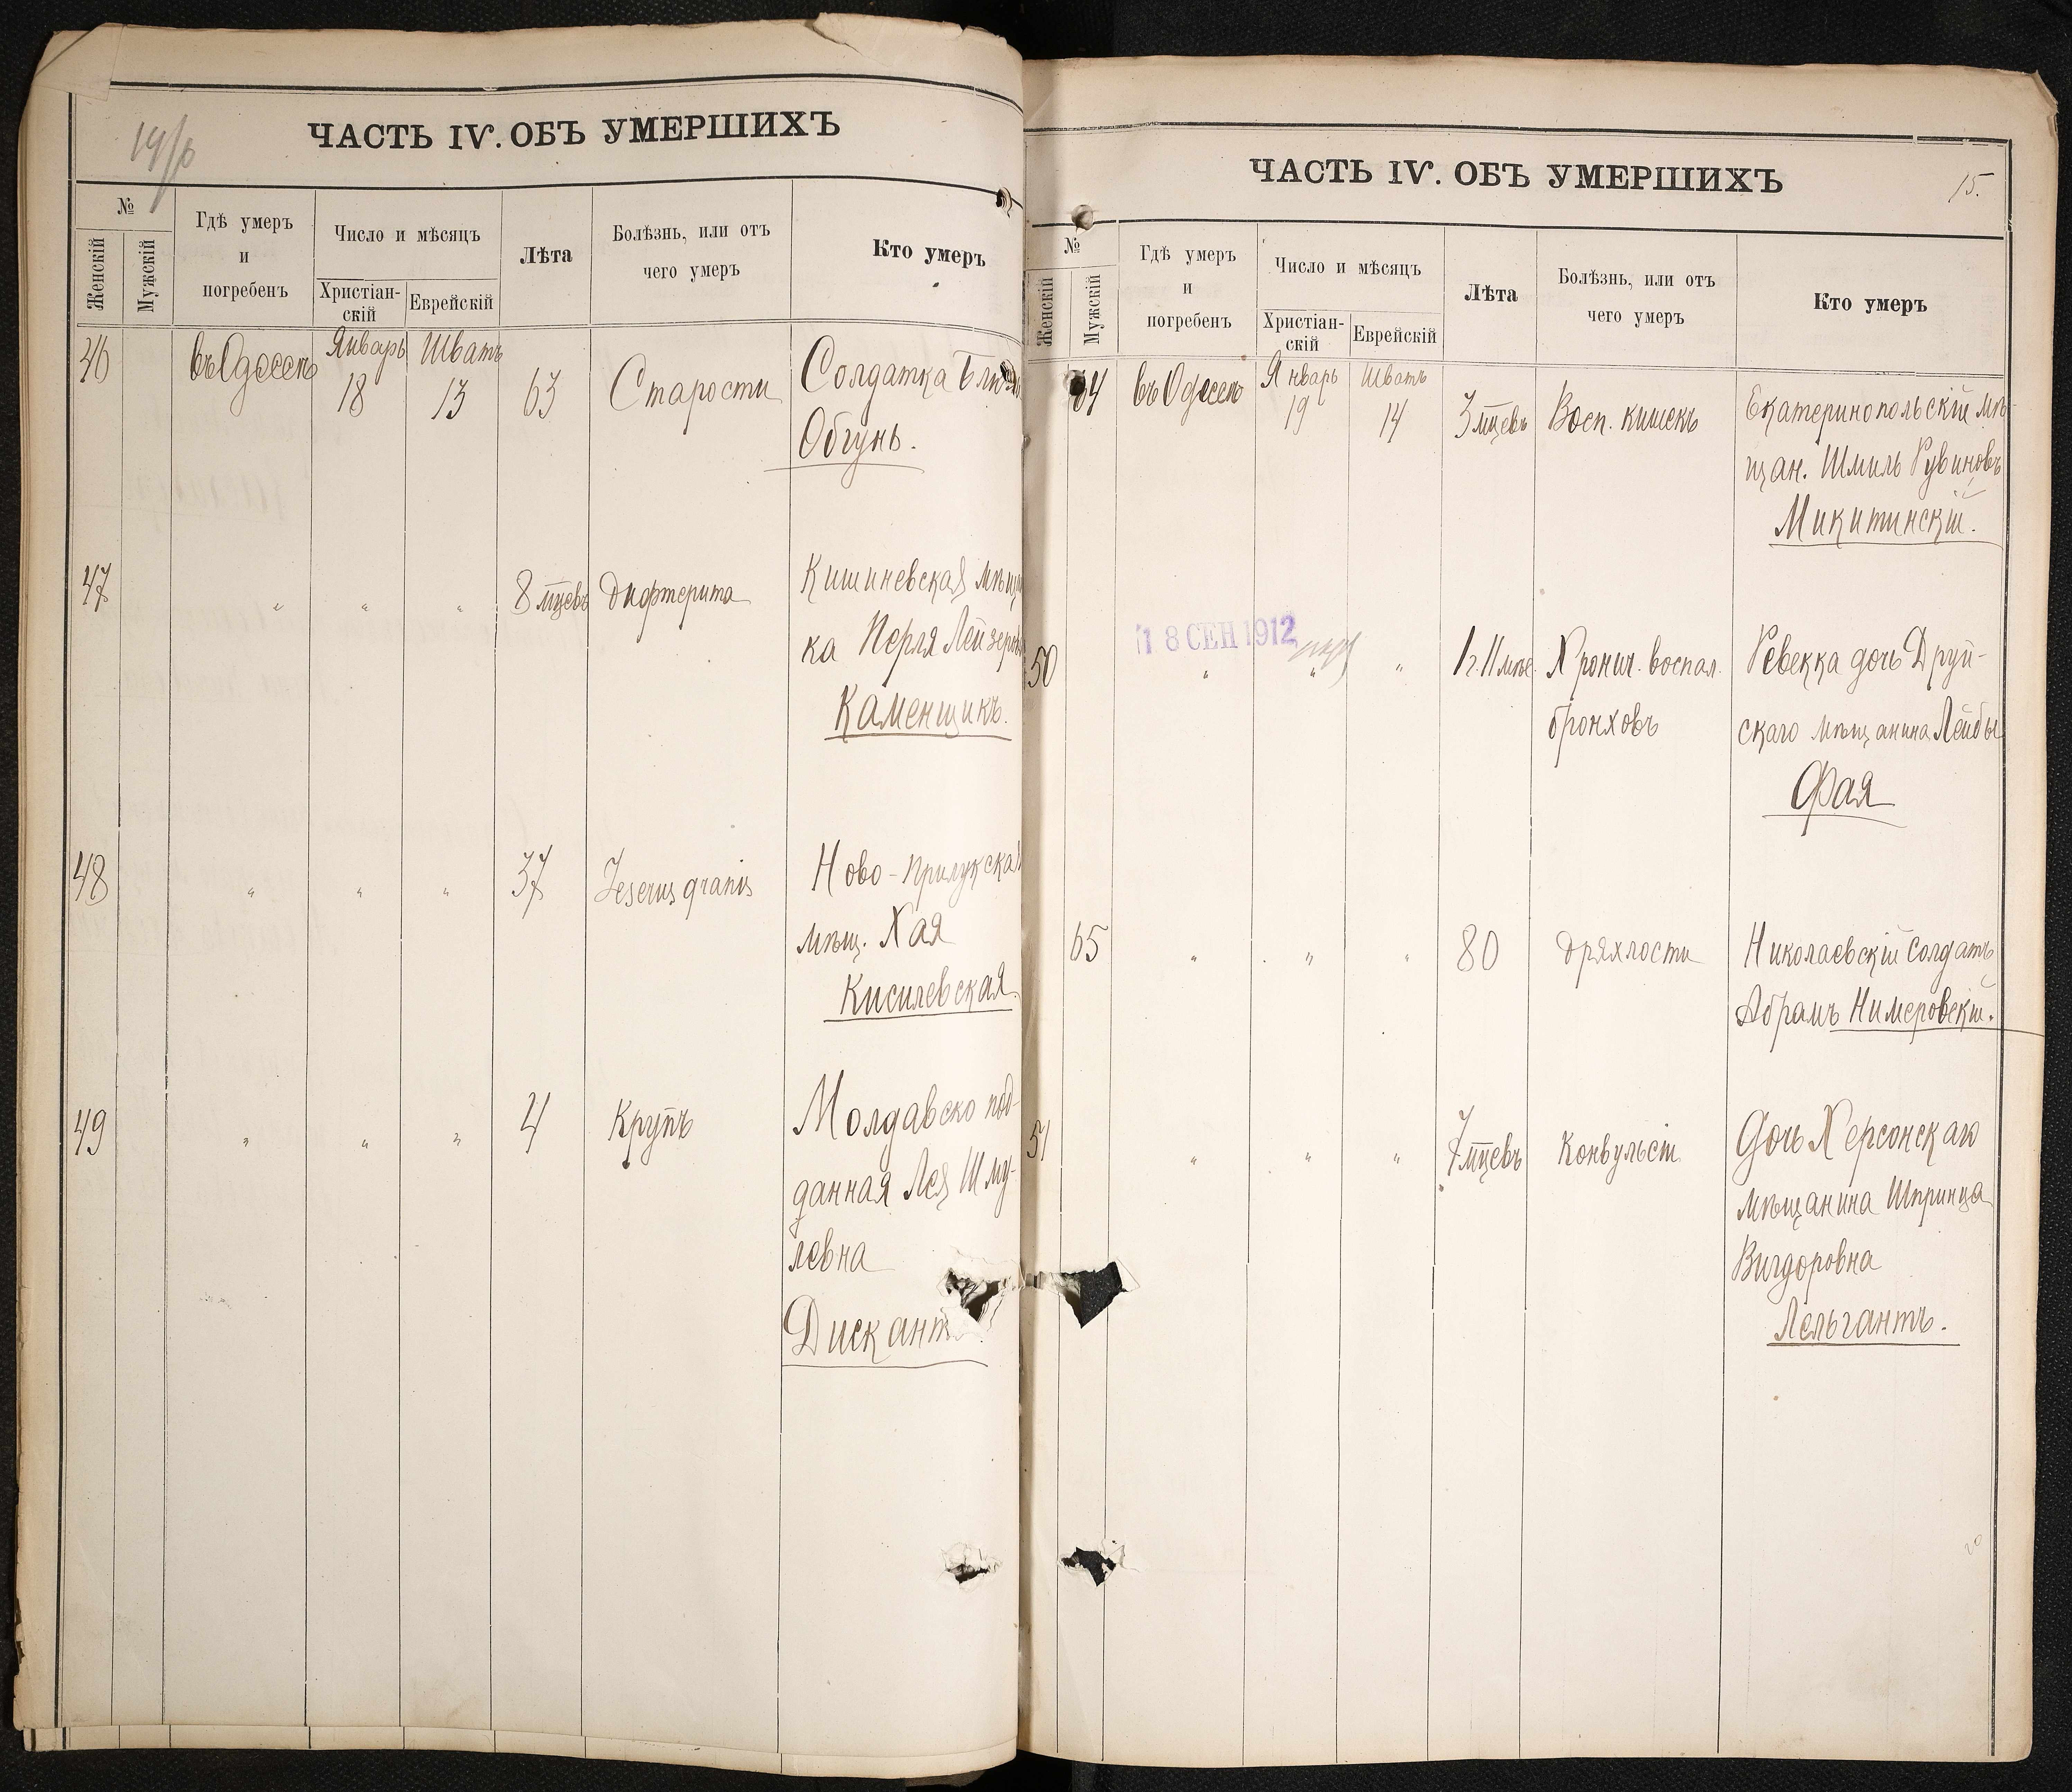 ЧАСТЬ IV. ОБЪ УМЕРШИХЪ
№
Женскій
Мужскій
Гдѣ умеръ
и
погребенъ
Число и мѣсяцъ
Христіан-
скій
Еврейскій
Лѣта
Болѣзнь, или отъ
чего умеръ
Кто умеръ
46 въ Одессѣ Январь 18 Шватъ 13 63 Старости Солдатка
Обгунь.
47 " " " 8 мцевъ Дифтерита Кишиневская мѣщан
ка Перля Лейзеровн
Каменщикъ.
48 " " " 37 Ново-Прилукская
мѣщ. Хая
Кисилевская
49 " " " 4 Крупъ Молдавско под-
данная Лея Шму-
левна
Дискантъ
ЧАСТЬ IV. ОБЪ УМЕРШИХЪ
15.
№
Женскій
Мужскій
Гдѣ умеръ
и
погребенъ
Число и мѣсяцъ
Христіан-
скій
Еврейскій
Лѣта
Болѣзнь, или отъ
чего умеръ
Кто умеръ
64 въ Одессѣ Январь 19 Шватъ 14 3 мцевъ Восп. кишекъ Екатеринопольскій мѣ-
щан. Шмиль Рувиновъ
Микитинскій.
18 СЕН 1912
50 " " " 1 г. 11 мѣс. Хронич. воспал. Ревекка дочь Друй-
бронховъ скаго мѣщанина Лейбы
Фая
65 " " " 80 Дряхлости Николаевскій солдатъ
Абрамъ Нимеровскій.
51 " " " 7 мцевъ Конвульсіи Дочь Херсонскаго
мѣщанина Шпринца
Вигдоровна
Лельгантъ.